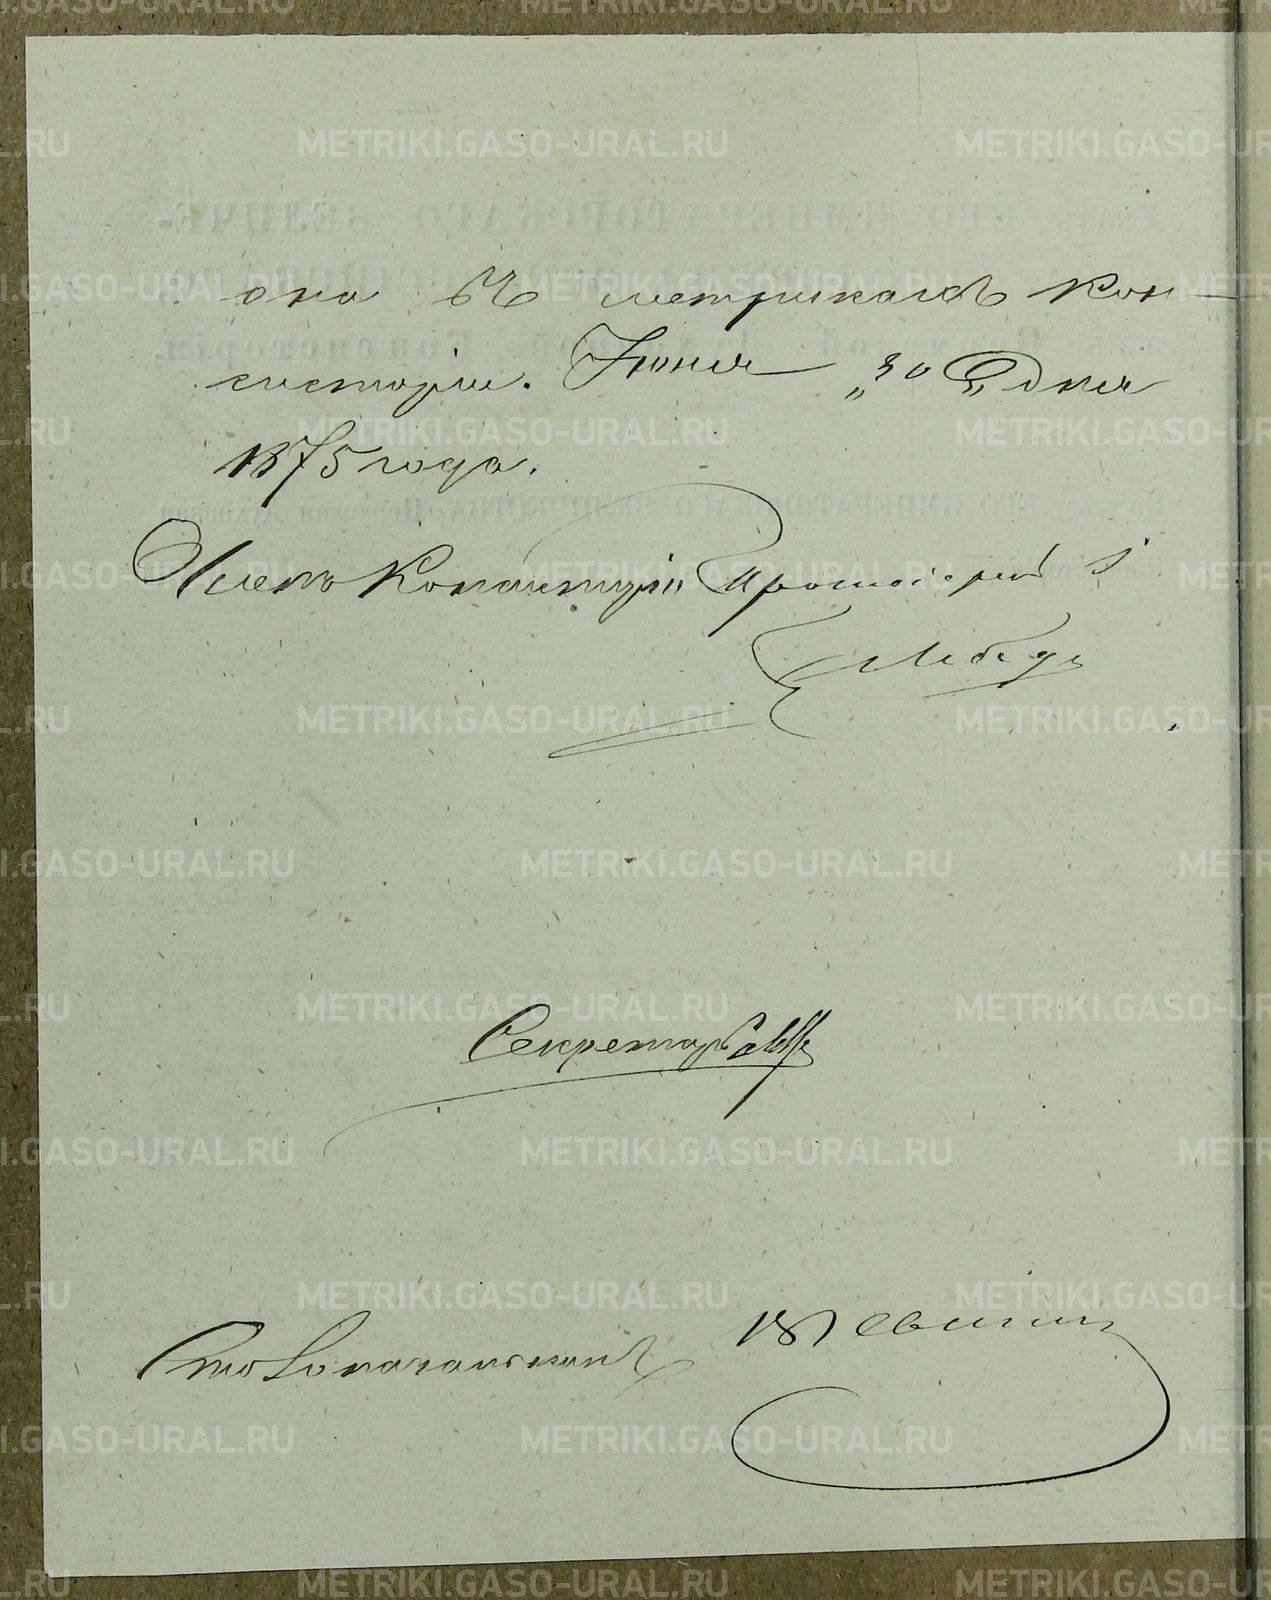 она въ метрикахъ Кон-
систоріи. Іюня „30„ дня
1875 года.
Членъ Консисторіи Протоіерей І
Секретарь
Столоначальникъ
METRIKI.GASO-URAL.RU